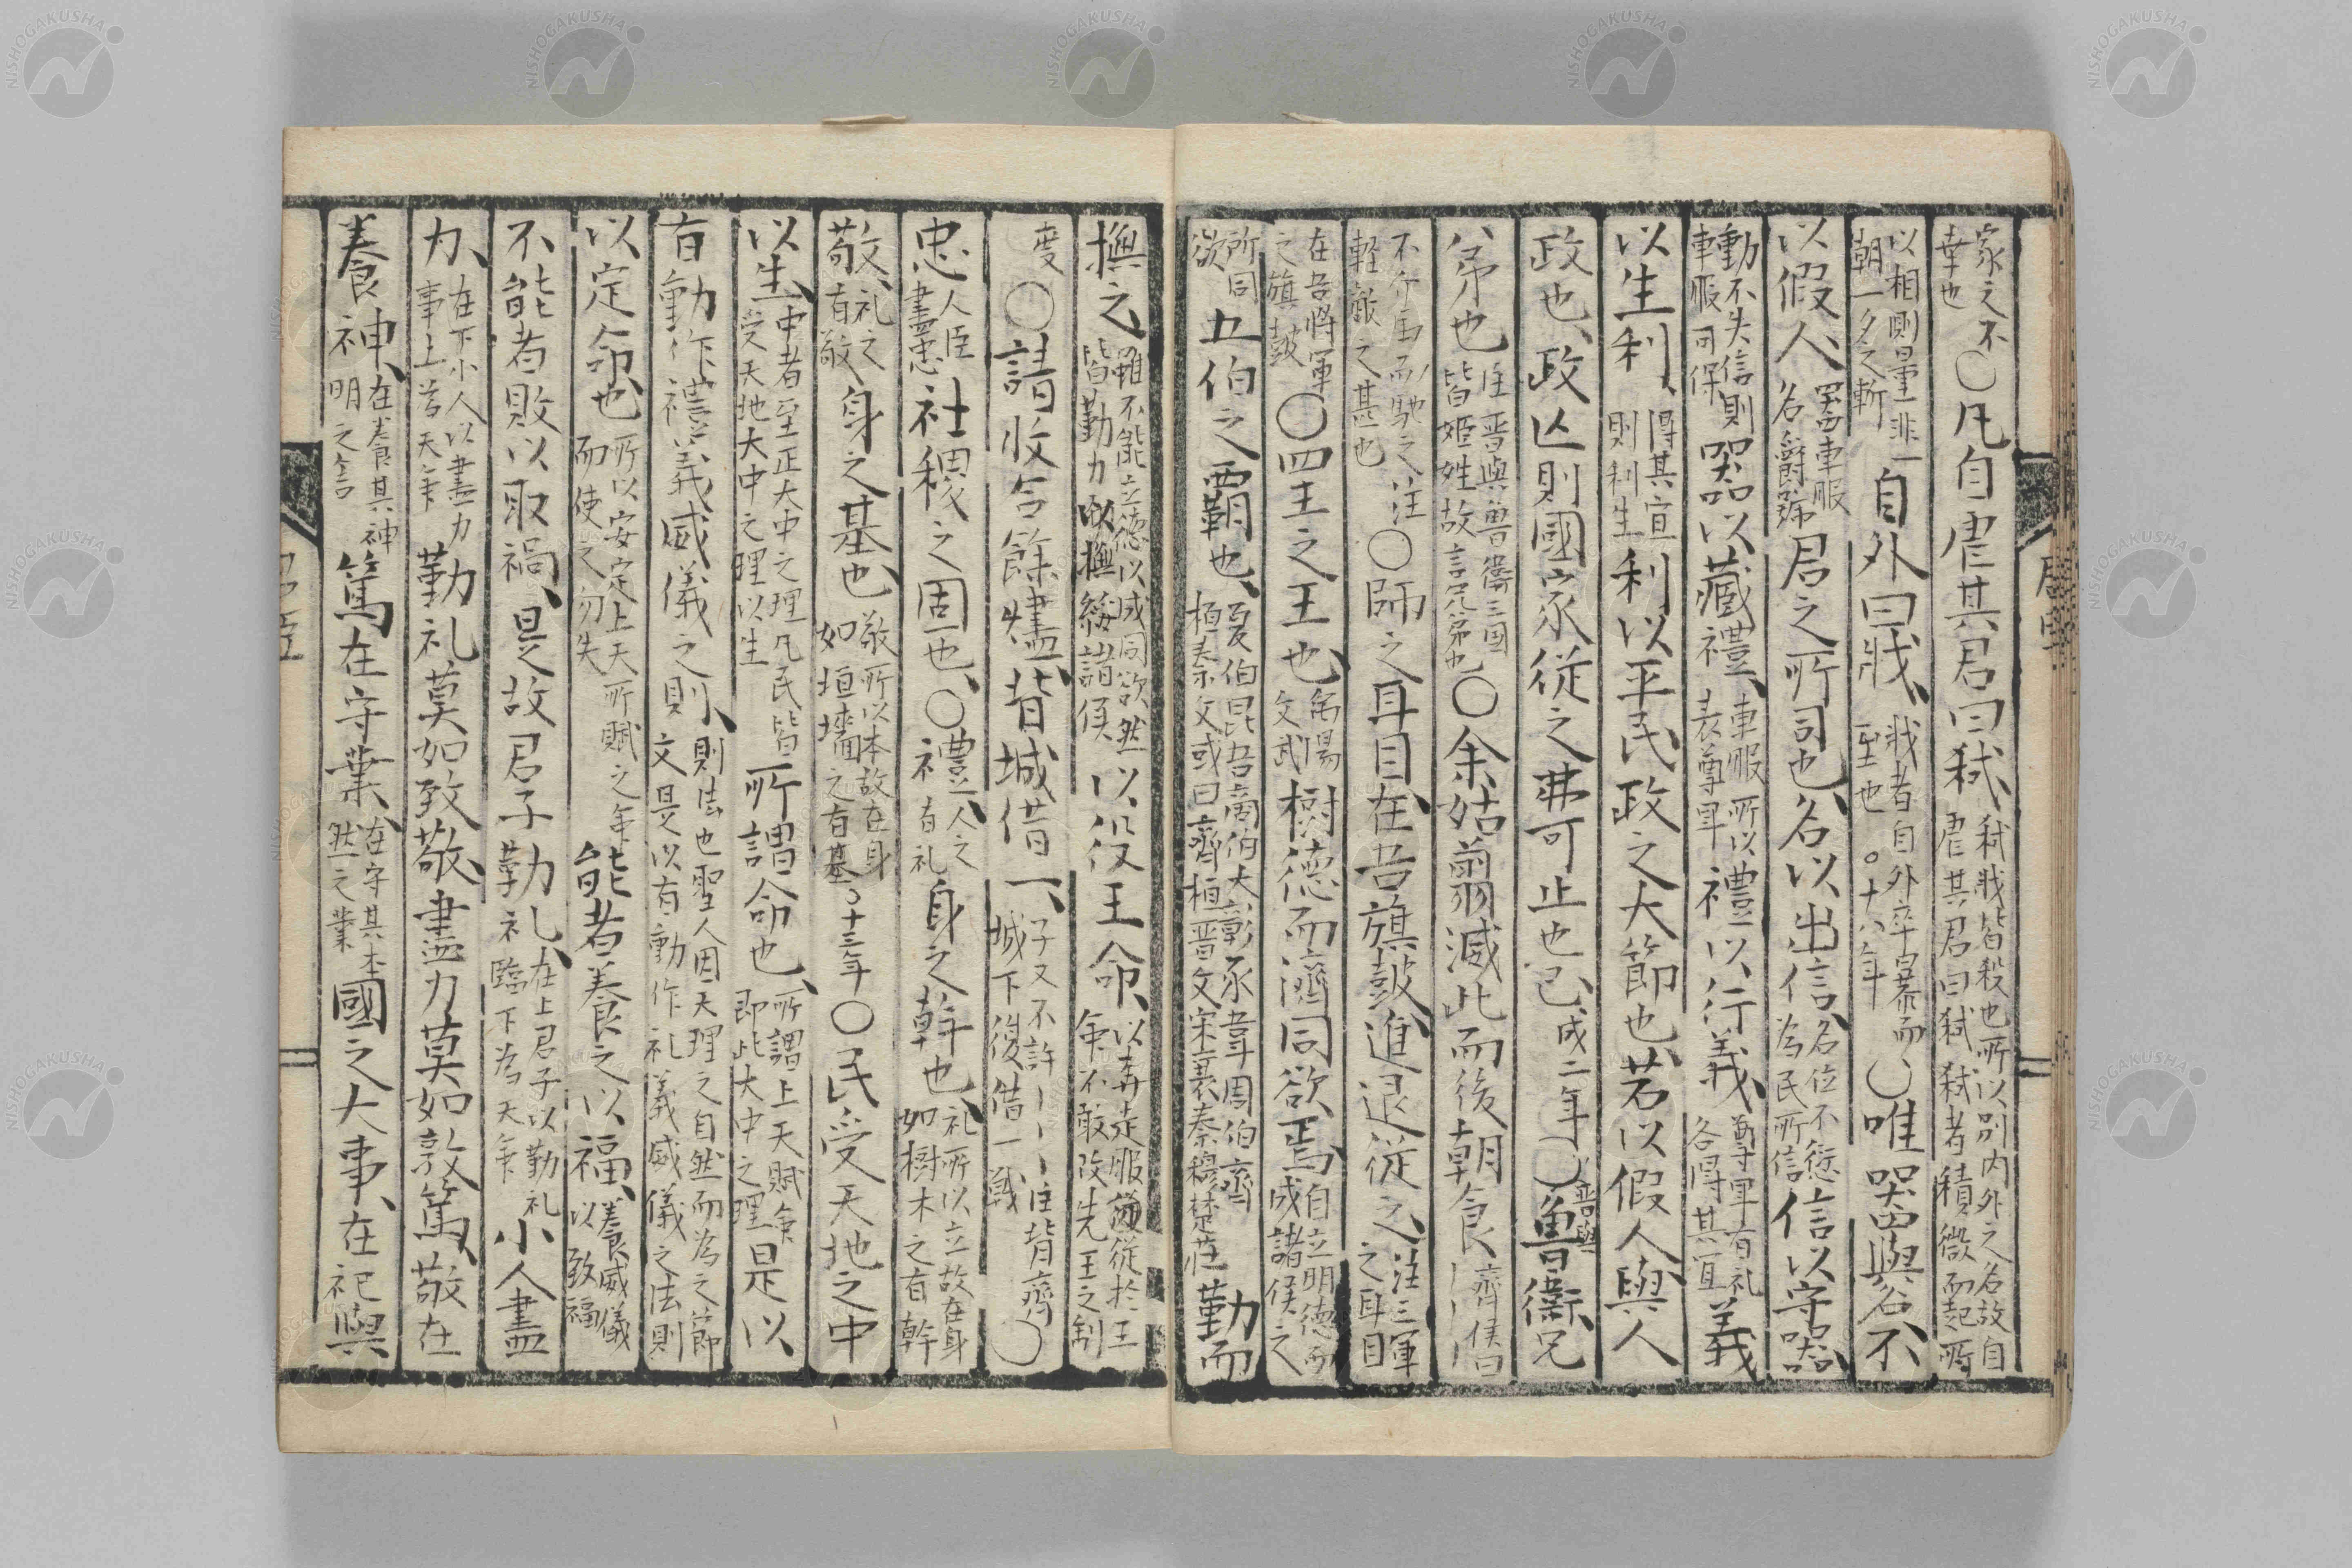 家之不幸也○凡自虐其君曰弑弑戕皆殺也所以別内外之名故自虐其君曰弑弑者積微而起所
以相測量非一朝一夕之漸自外曰戕戕者自外卒暴而至也○十八年○唯器與名不
以假人器車服名爵号君之所司也名以出信名位不愆為民所信信以守器
動不失信則車服可保器以藏禮車服所以表尊卑禮以行義尊卑有礼各得其宜義
以生利得其宜則利生利以平民政之大節也若以假人與人
政也政亾則國家從之弗可止也已成二年○晋與魯衛兄
弟也注晋與魯衛三國皆姫姓故言兄弟也○余姑翦滅此而後朝食齊侯曰
不介馬而馳之注軽敵之甚也○師之耳目在吾旗鼓進退從之注三軍之耳目
在吾將軍之旗鼓○四王之王也禹湯文武樹德而濟同欲焉自立明德而成諸侯之
所同欲五伯之覇也夏伯昆吾商伯大彭豕韋周伯齊桓晋文或曰齊桓晋文宋襄秦穆楚莊勤而
撫之雖不能立德以成同欲然皆勤力以撫綏諸侯以役王命以奔走服從於王命不敢改先王之制
度○請收合餘燼背城借一子又不許注背齊城下復借一戦○
忠人臣盡忠社稷之固也○禮人之有礼身之幹也礼所以立故在身如樹木之有幹
敬礼之有敬身之基也敬所以本故在身如垣墻之有基○十三年○民受天地之中
以生中者至正大中之理凡民皆受天地大中之理以生所謂命也所謂上天賦命即此大中之理是以
有動作禮義威儀之則則法也聖人因天理之自然而為之節文是以有動作礼義威儀之法則
以定命也所以安定上天所賦之命而使之勿失能者養之以福養威儀以致福
不能者敗以取禍是故君子勤礼在上君子以勤礼臨下為天命小人盡
力在下小人以盡力事上為天命勤礼莫如致敬盡力莫如敦篤敬在
養神在養其神明之舍篤在守業在守其本然之業國之大事在祀與